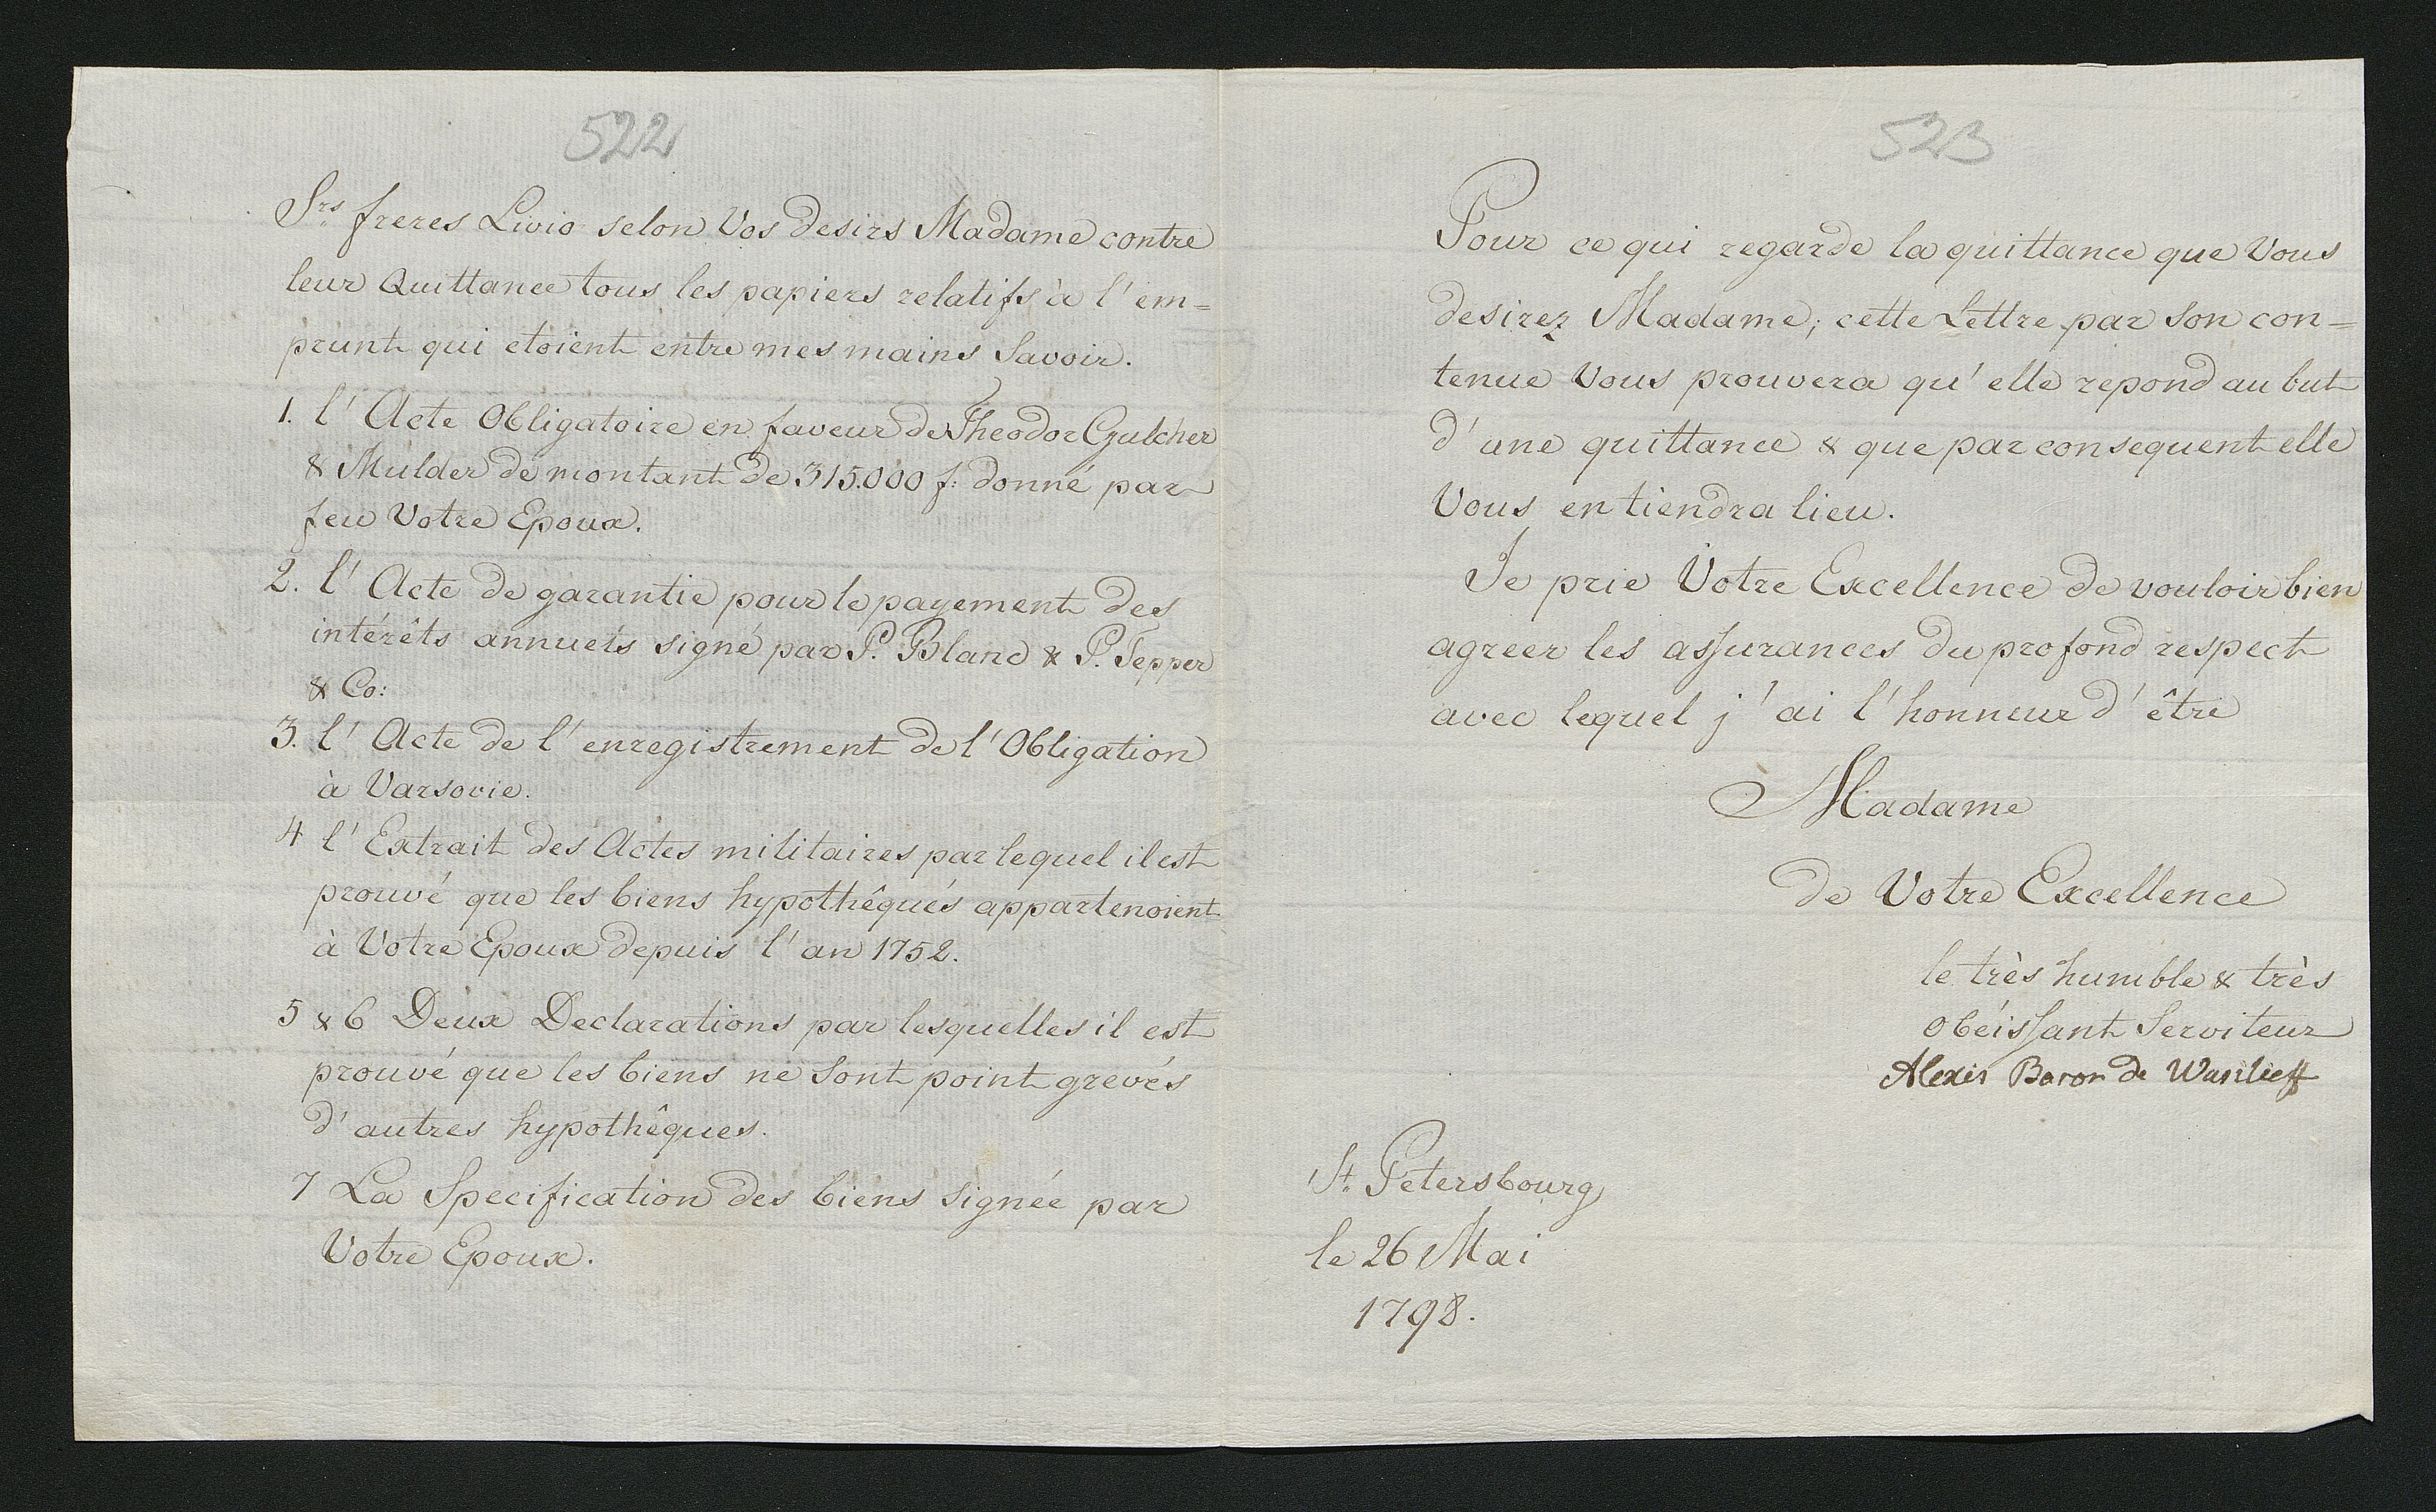 522
Srs freres Livio selon Vos desirs Madame contre
leur Quittance tous les papiers relatifs à l'em=
prunt qui etoient entre mes mains Savoir.
1. l'Acte Obligatoire en faveur de Theodor Gulcher
& Mulder de montant de 315.000 f: donné par
feu Votre Epoux.
2. l'Acte de garantie pour le payement des
intérêts annuels signé par P. Blanc & P. Tepper
& Co:
3. l'Acte de l'enregistrement de l'Obligation
à Varsovie.
4 l'Extrait des Actes militaires par lequel il est
prouvé que les biens hypothêqués appartenoient
à Votre Epoux depuis l'an 1752.
5 & 6 Deux Declarations par lesquelles il est
prouvé que les biens ne sont point grevés
d'autres hypothêques.
7 La Specification des biens signée par
Votre Epoux.
523
Pour ce qui regarde la quittance que Vous
desirez Madame; cette Lettre par son con=
tenue Vous prouvera qu'elle repond au but
d'une quittance & que par consequent elle
Vous en tiendra lieu.
Je prie Votre Excellence de vouloir bien
agreer les assurances du profond respect
avec lequel j'ai l'honneur d'être
Madame
de Votre Excellence
le très humble & très
obéissant Serviteur
Alexis Baron de Wasilieff
St. Petersbourg
le 26 Mai
1798.